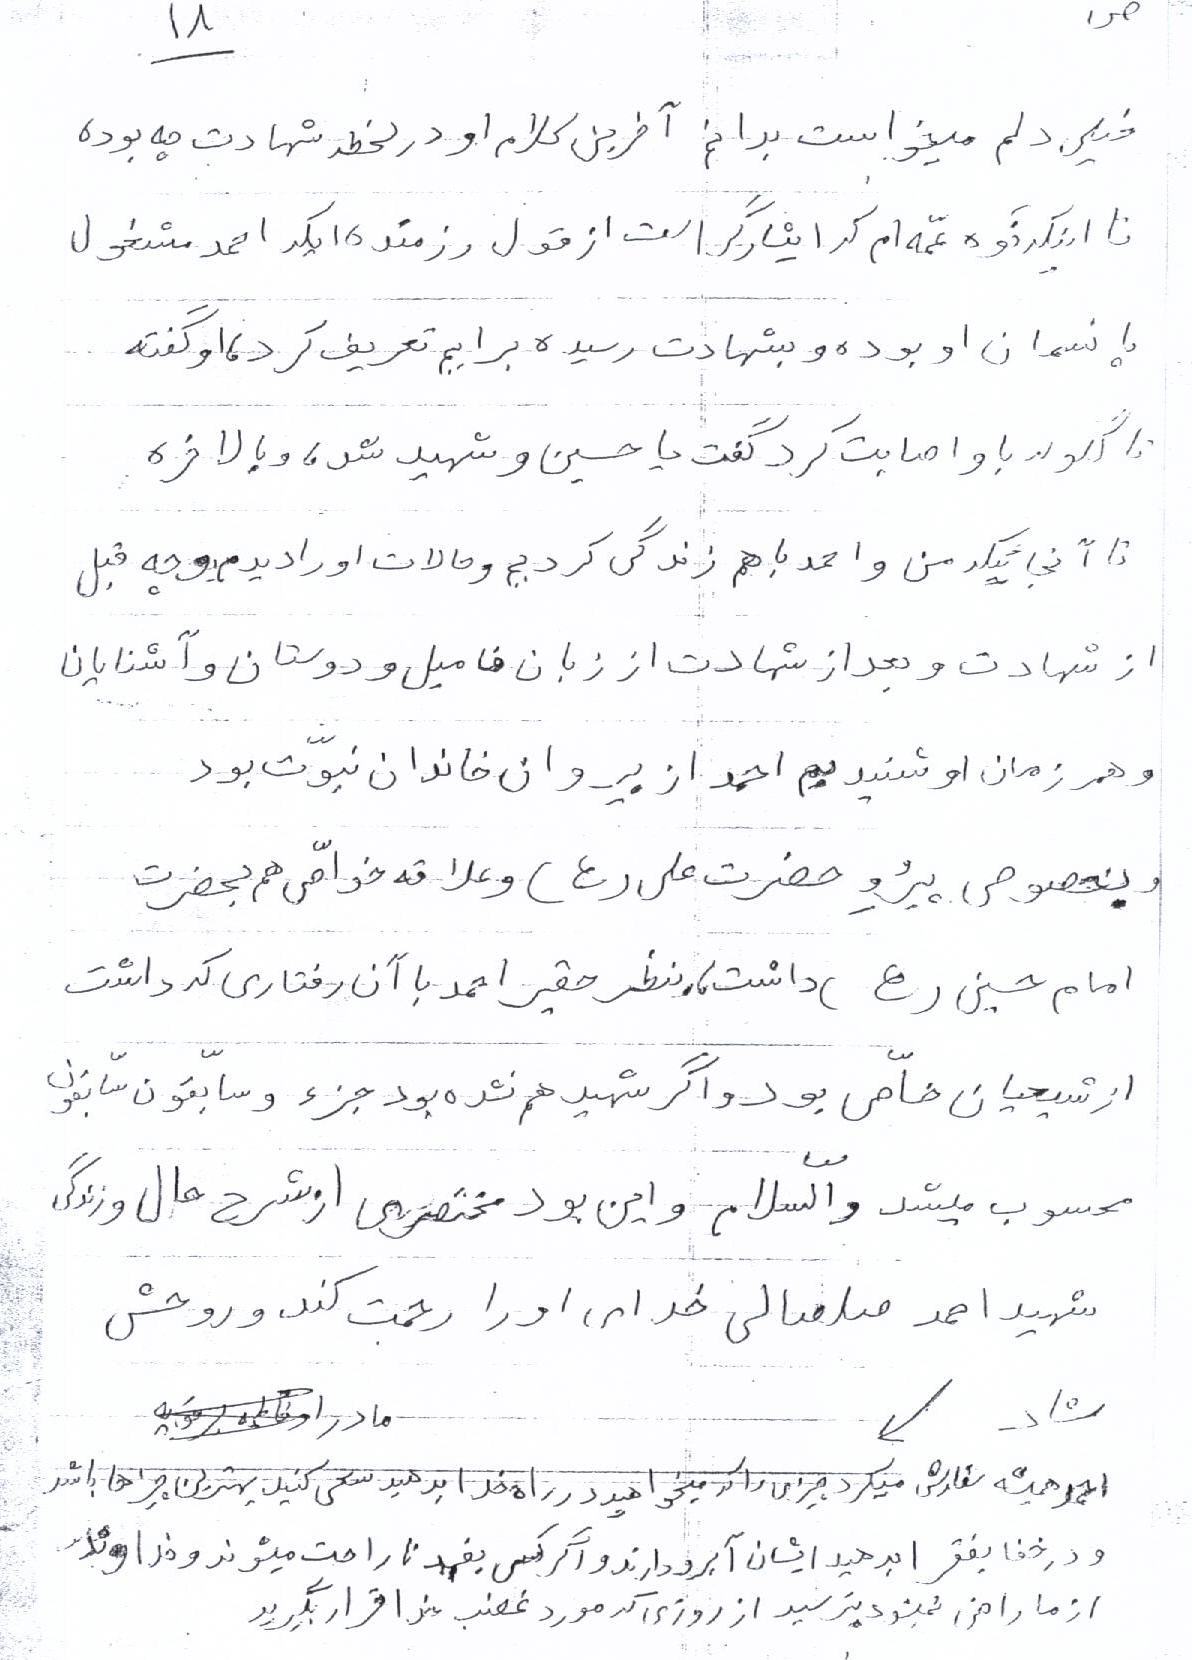 ۱۸
خیلی دلم میخواست بدانم آخرین کلام او در لحظه شهادت چه بوده
تا اینکه نوه عمّه ام که ایثارگر است از قول رزمنده ایکه احمد مشغول
پانسمان او بوده و بشهادت رسیده برایم تعریف کرد، او گفته
تا گلوله باو اصابت کرد گفت یا حسین و شهید شد، و بالاخره
تا آنجائیکه من و احمد باهم زندگی کردیم و حالات او را دیدم چه قبل
از شهادت و بعد از شهادت از زبان فامیل و دوستان و آشنایان
و همرزمان او شنیدیم احمد از پیروان خاندان نبوّت بود
و بخصوص پیرُوِ حضرت علی (ع) و علاقه خواصّی هم بحضرت
امام حسین (ع) داشت، بنظر حقیر احمد با آن رفتاری که داشت
از شیعیان خاصّ بود و اگر شهید هم نشده بود جزء و سابّقون سّابقون
محسوب میشد والسّلام و این بود مختصری از شرح حال و زندگی
شهید احمد خدای او را رحمت کند و روحش
شاد مادر او
احمد همیشه سفارش میکرد چیزی را که میخواهید در راه خدا بدهید سعی کنید بهترین چیزها باشد
و در خفا بفقرا بدهید ایشان آبرو دارند و اگر کسی بفهمد ناراحت میشوند و خداوند
از ما راضی نمیشود بترسید از روزی که مورد غضب خدا قرار بگیرید